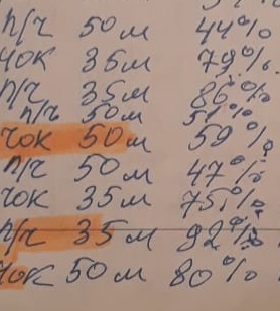 п/ч 50м 44%
чок 35м 79%
п/ч 35м 86%
п/ч 50м 51%
чок 50м 59%
п/ч 50м 47%
чок 35м 75%
п/ч 35м 92%
чок 50м 80%